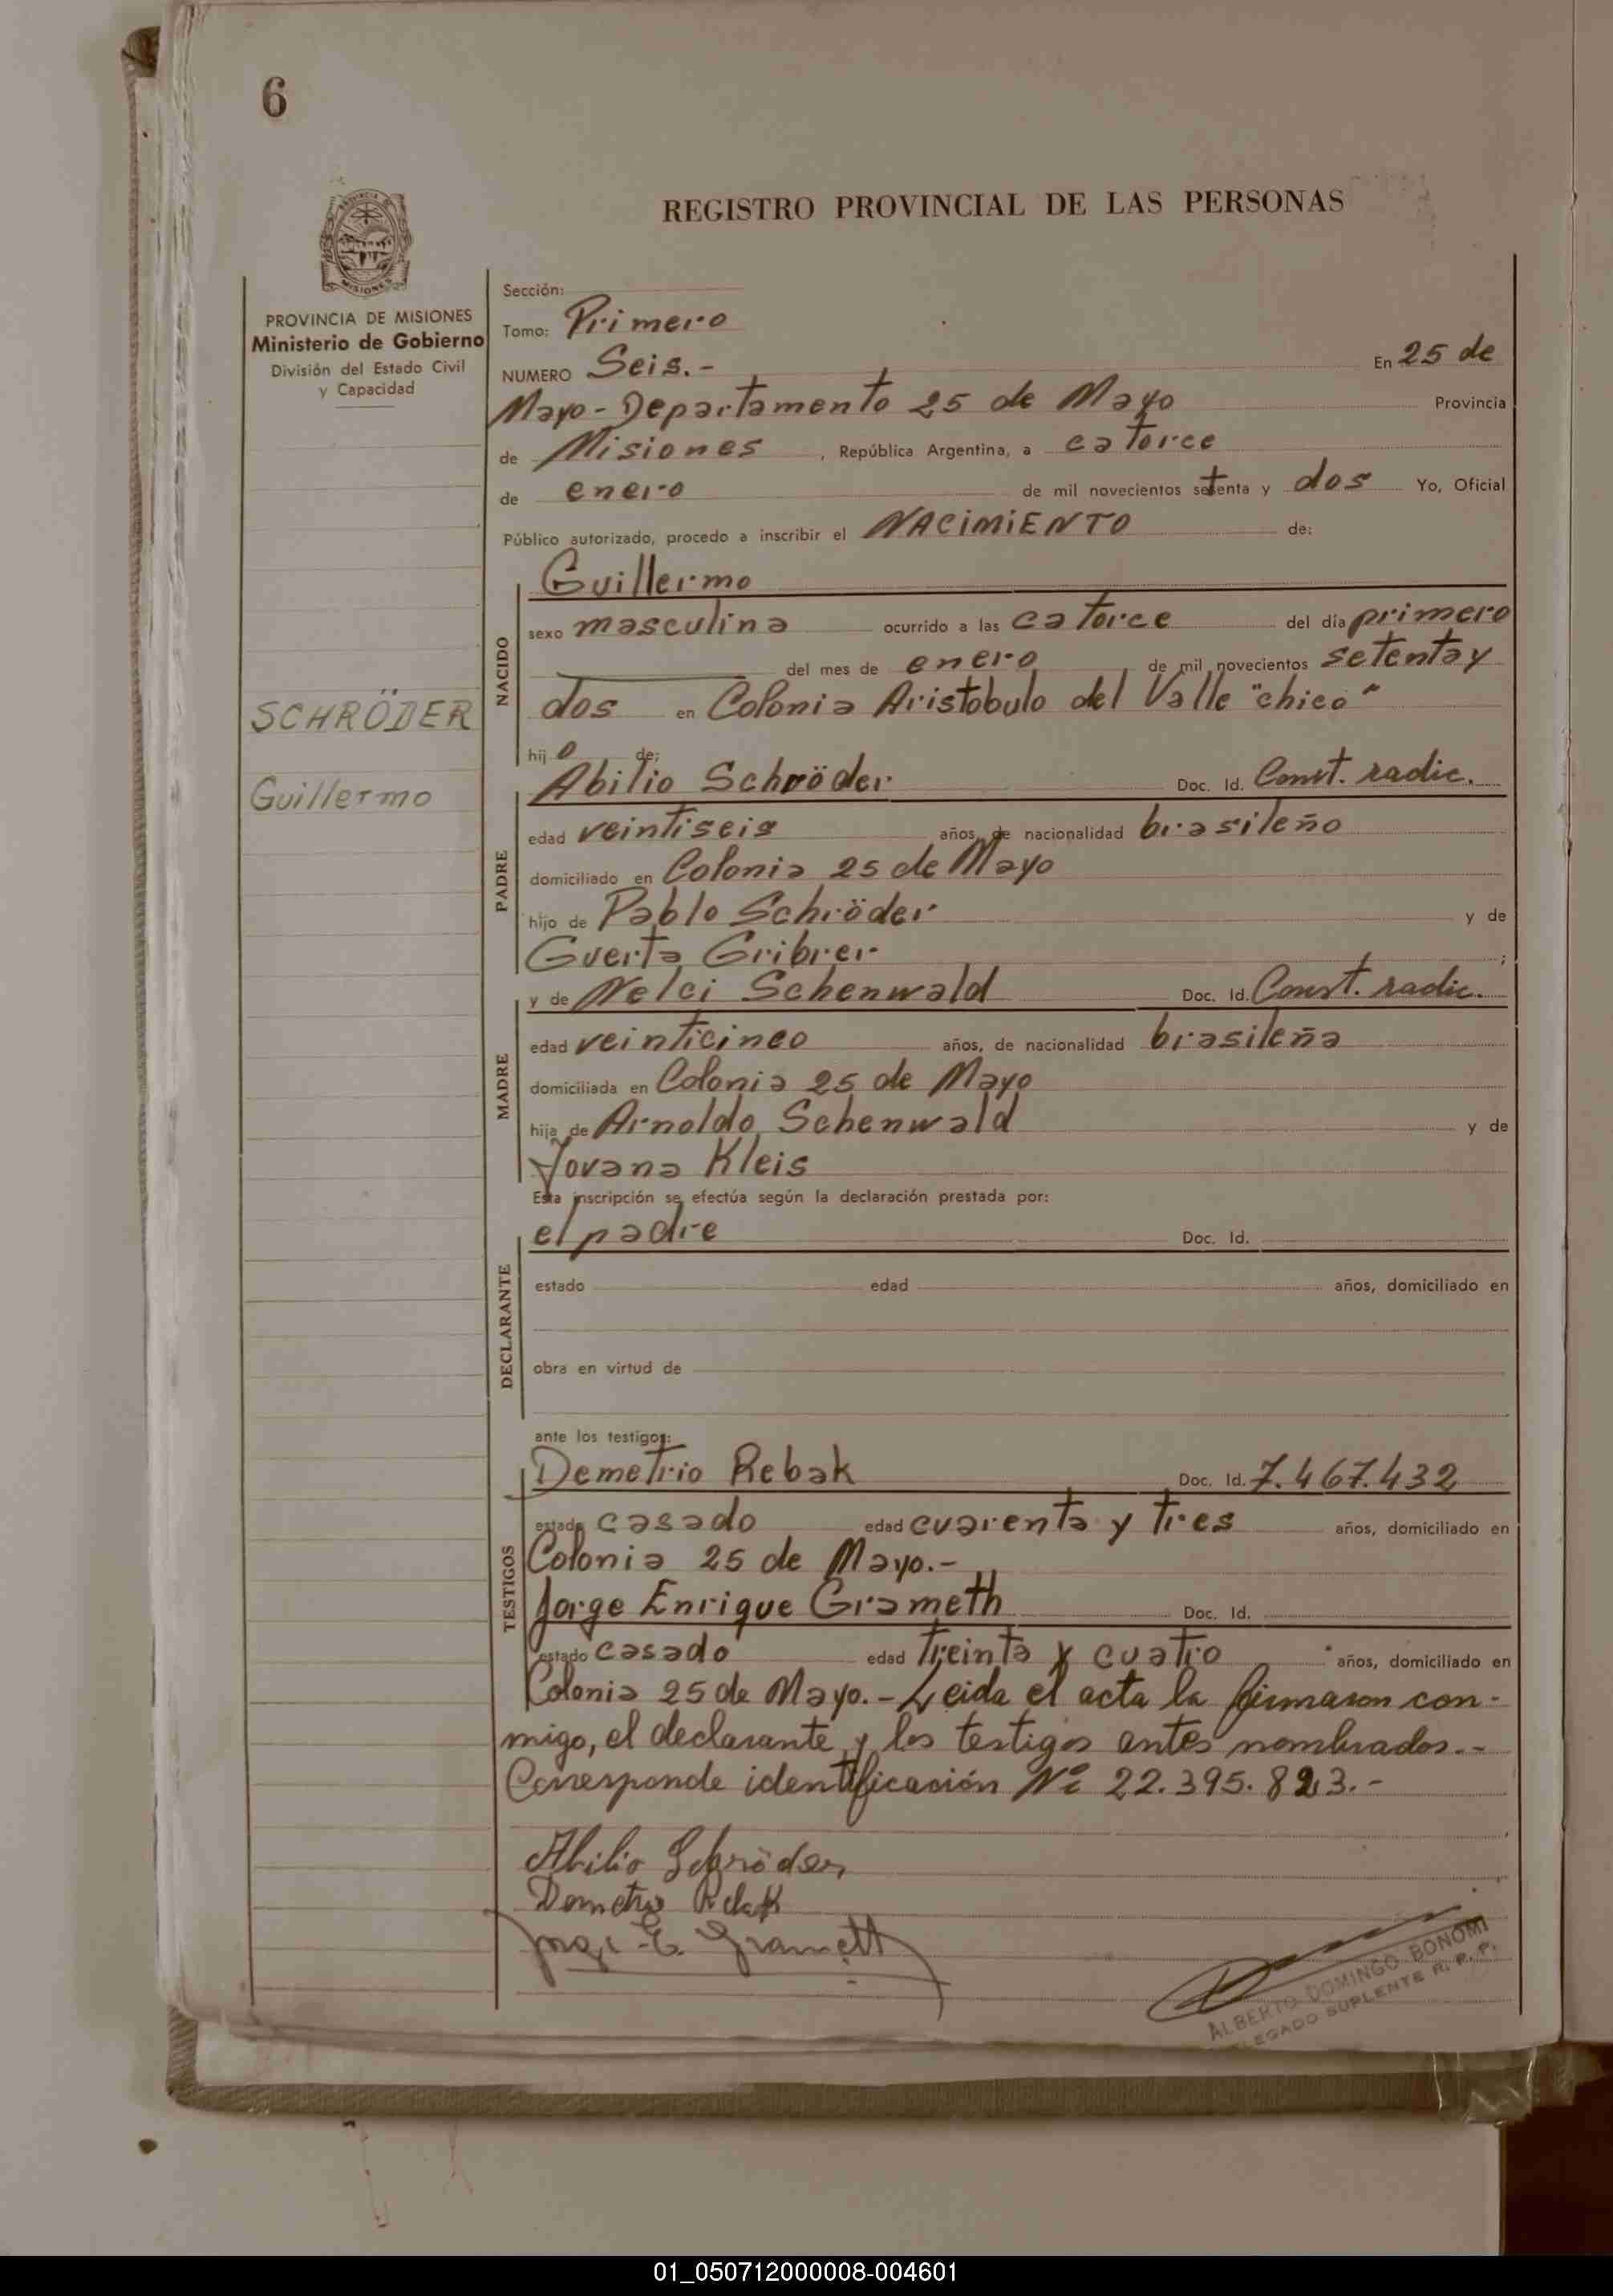 6
REGISTRO PROVINCIAL DE LAS PERSONAS
PROVINCIA DE MISIONES
Ministerio de Gobierno
División del Estado Civil
y Capacidad
SCHRÖDER
Guillermo
Sección:
Tomo: Primero
NUMERO Seis.- En 25 de
Mayo - Departamento 25 de Mayo Provincia
de Misiones, República Argentina, a catorce
de enero de mil novecientos setenta y dos Yo, Oficial
Público autorizado, procedo a inscribir el NACIMIENTO de:
NACIDO
Guillermo
sexo masculino ocurrido a las catorce del día primero
del mes de enero, de mil novecientos setenta y
dos en Colonia Aristobulo del Valle "chico"
hijo de:
PADRE
Abilio Schröder Doc. Id. Const. radic.
edad veintiseis años, de nacionalidad brasileño
domiciliado en Colonia 25 de Mayo
hijo de Pablo Schröder y de
Guerta Gribrer ;
MADRE
y de Nelci Schenwald Doc. Id. Const. radic.
edad veinticinco años, de nacionalidad brasileña
domiciliada en Colonia 25 de Mayo
hija de Arnoldo Schenwald y de
Jovana Kleis
Esta inscripción se efectúa según la declaración prestada por:
DECLARANTE
el padre Doc. Id.
estado edad años, domiciliado en
obra en virtud de
ante los testigos:
TESTIGOS
Demetrio Rebak Doc. Id. 7.467.432
estado casado edad cuarenta y tres años, domiciliado en
Colonia 25 de Mayo.-
Jorge Enrique Grameth Doc. Id.
estado casado edad treinta y cuatro años, domiciliado en
Colonia 25 de Mayo.- Leida el acta la firmaron con-
migo, el declarante y los testigos antes nombrados.-
Corresponde identificación Nº 22.395.823.-
Abilio Schröder
Demetrio Rebak
Jorge E. Grameth
ALBERTO DOMINGO BONOMI
LEGADO SUPLENTE R. P. P.
01_050712000008-004601